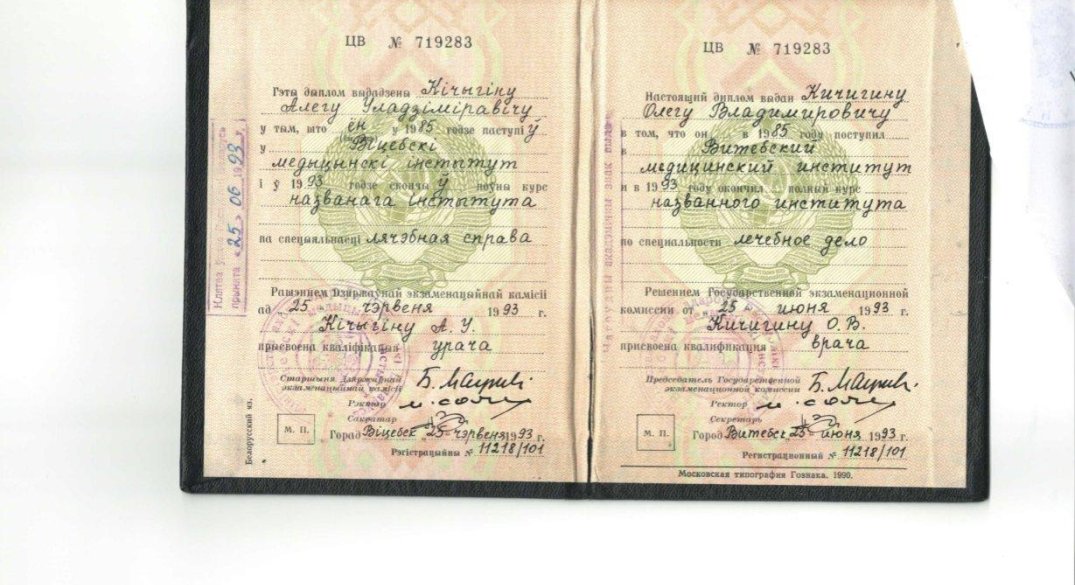 ЦВ № 719283
Гэты дыплом выдадзены Кічыгіну
Алегу Уладзіміравічу
у тым, што ён у 1985 годзе паступіў
у Віцебскі
медыцынскі інстытут
і ў 1993 годзе скончыў поўны курс
названага інстытута
па спецыяльнасці лячэбная справа
Рашэннем Дзяржаўнай экзаменацыйнай камісіі
ад 25 чэрвеня 1993 г.
Кічыгіну А. У.
прысвоена кваліфікацыя урача
Старшыня Дзяржаўнай
экзаменацыйнай камісіі
Рэктар
Сакратар
М. П.
Город Віцебск 25 чэрвеня 1993 г.
Рэгістрацыйны № 11218/101
Белорусский яз.
Клятва
«25» 06 1993 г.
ЦВ № 719283
Настоящий диплом выдан Кичигину
Олегу Владимировичу
в том, что он в 1985 году поступил
в Витебский
медицинский институт
и в 1993 году окончил полный курс
названного института
по специальности лечебное дело
Решением Государственной экзаменационной
комиссии от 25 июня 1993 г.
Кичигину О. В.
присвоена квалификация врача
Председатель Государственной
экзаменационной комиссии
Ректор
Секретарь
М. П.
Город Витебск 25 июня 1993 г.
Регистрационный № 11218/101
Московская типография Гознака. 1990.